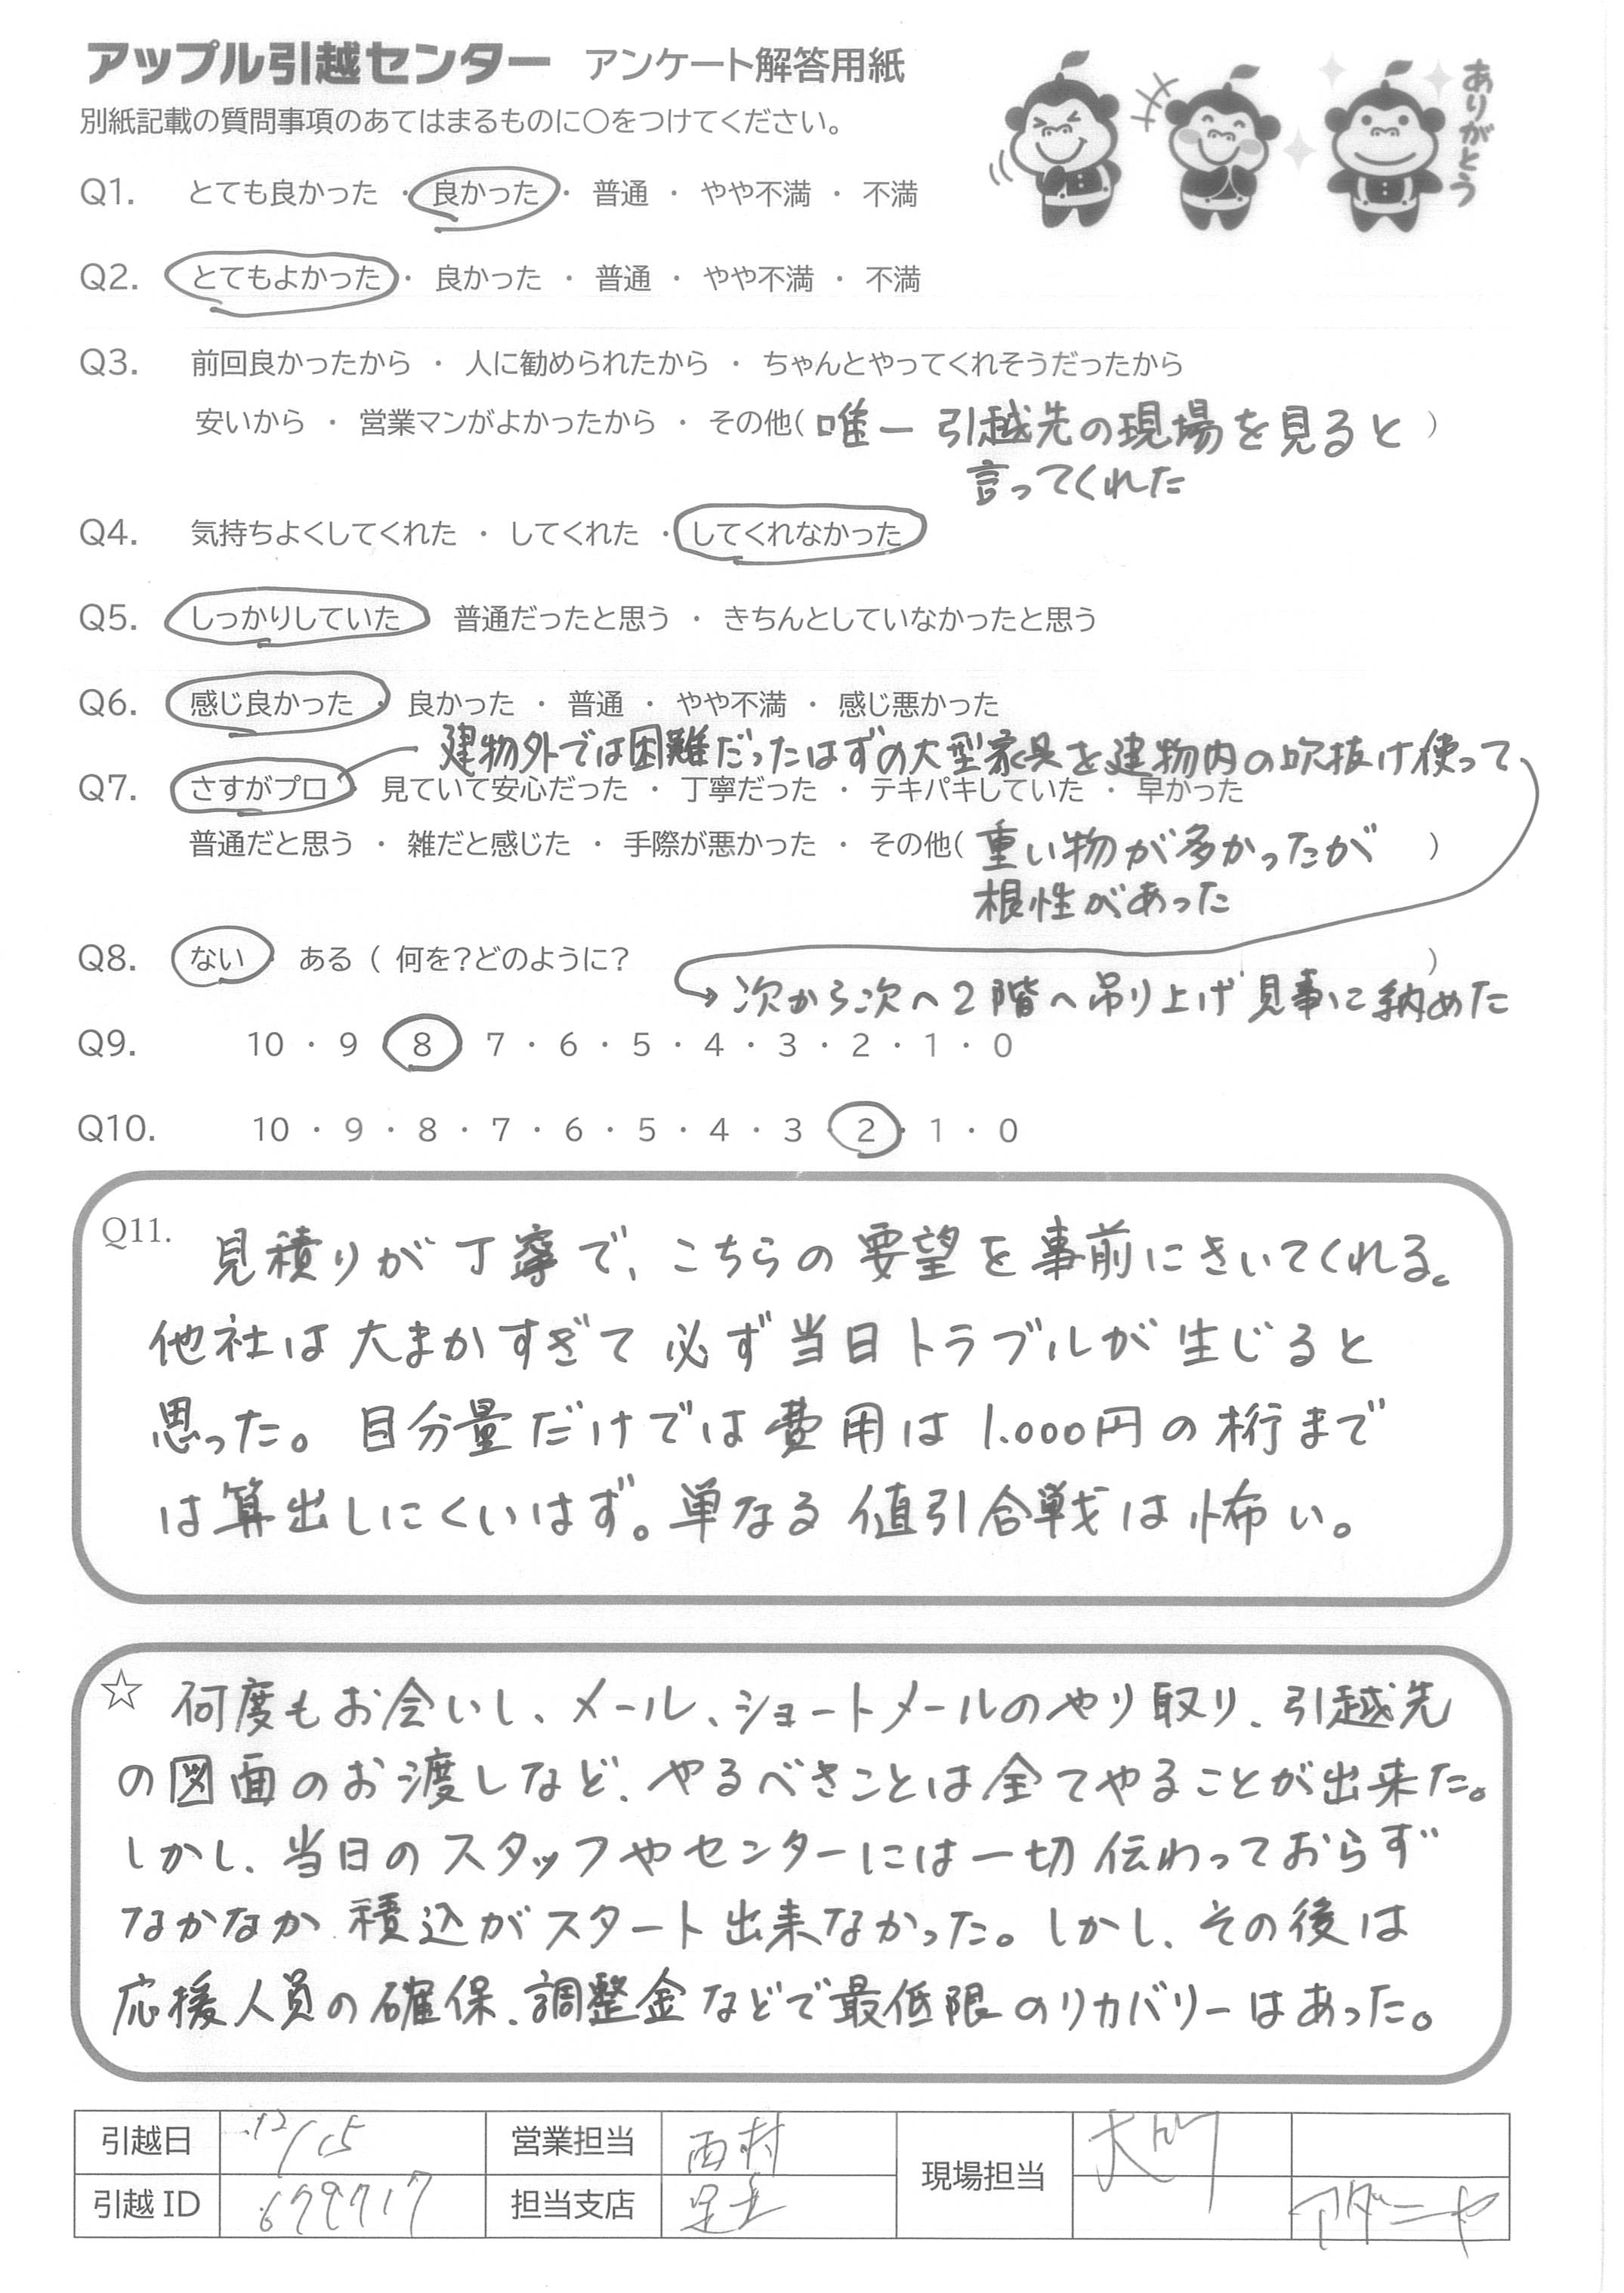 アップル引越センター アンケート解答用紙
別紙記載の質問事項のあてはまるものに○をつけてください。
ありがとう
Q1. とても良かった ・ 良かった ・ 普通 ・ やや不満 ・ 不満
Q2. とてもよかった ・ 良かった ・ 普通 ・ やや不満 ・ 不満
Q3. 前回良かったから ・ 人に勧められたから ・ ちゃんとやってくれそうだったから
安いから ・ 営業マンがよかったから ・ その他( 唯一 引越先の現場を見ると )
言ってくれた
Q4. 気持ちよくしてくれた ・ してくれた ・ してくれなかった
Q5. しっかりしていた 普通だったと思う ・ きちんとしていなかったと思う
Q6. 感じ良かった ・ 良かった ・ 普通 ・ やや不満 ・ 感じ悪かった
建物外では困難だったはずの大型家具を建物内の吹抜け使って
Q7. さすがプロ 見ていて安心だった ・ 丁寧だった ・ テキパキしていた ・ 早かった
普通だと思う ・ 雑だと感じた ・ 手際が悪かった ・ その他( 重い物が多かったが )
根性があった
Q8. ない ある ( 何を?どのように? )
→次から次へ2階へ吊り上げ見事に納めた
Q9. 10 ・ 9 8 7 ・ 6 ・ 5 ・ 4 ・ 3 ・ 2 ・ 1 ・ 0
Q10. 10 ・ 9 ・ 8 ・ 7 ・ 6 ・ 5 ・ 4 ・ 3 2 ・ 1 ・ 0
Q11. 見積りが丁寧で、こちらの要望を事前にきいてくれる。
他社は大まかすぎて必ず当日トラブルが生じると
思った。目分量だけでは費用は1.000円の桁まで
は算出しにくいはず。単なる値引合戦は怖い。
☆ 何度もお会いし、メール、ショートメールのやり取り、引越先
の図面のお渡しなど、やるべきことは全てやることが出来た。
しかし、当日のスタッフやセンターには一切伝わっておらず
なかなか積込がスタート出来なかった。しかし、その後は
応援人員の確保、調整金などで最低限のリカバリーはあった。
引越日 12/15 営業担当 西村 現場担当
引越 ID 679717 担当支店 足立 アダニヤ